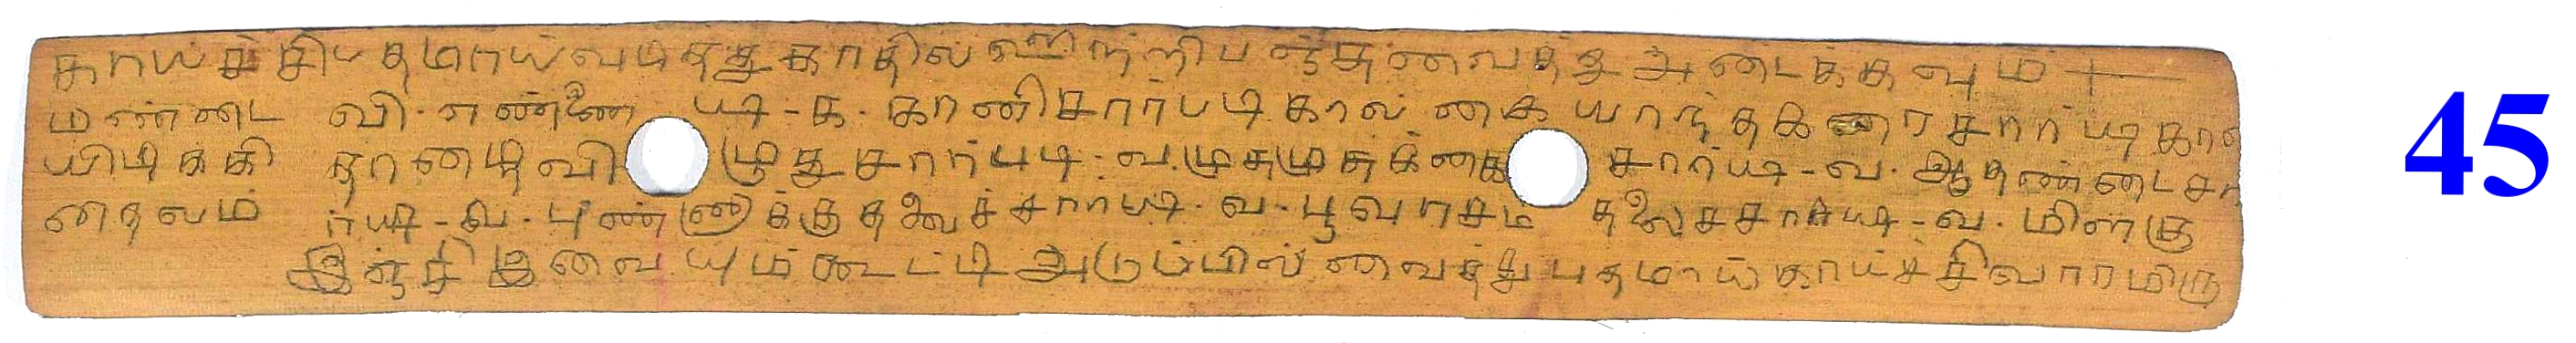 காய்ச்சி பதமாய் வடித்து காதில் ஊற்றி பஞ்சு வைத்து அடைக்கவும்
மண்டை வி. எண்ணை படி - க. கானிசார் படி கால் கை யாந்தகரை சார் படி கால்
யிடிக்கி தாண்டி வி ழுது சார் படி - வ. முசுமுசுக்கை சார் படி - வ. ஆதண்டை சா
தைலம் ர் படி - வ. புண்ணாக்கு தலைச் சார் படி - வ. பூவரசம் தலைச்சார் படி - வ. மிளகு
இஞ்சி இவையும் கூட்டி அடுப்பில் வைத்து பதமாய் காய்ச்சி வாரமிரு
45